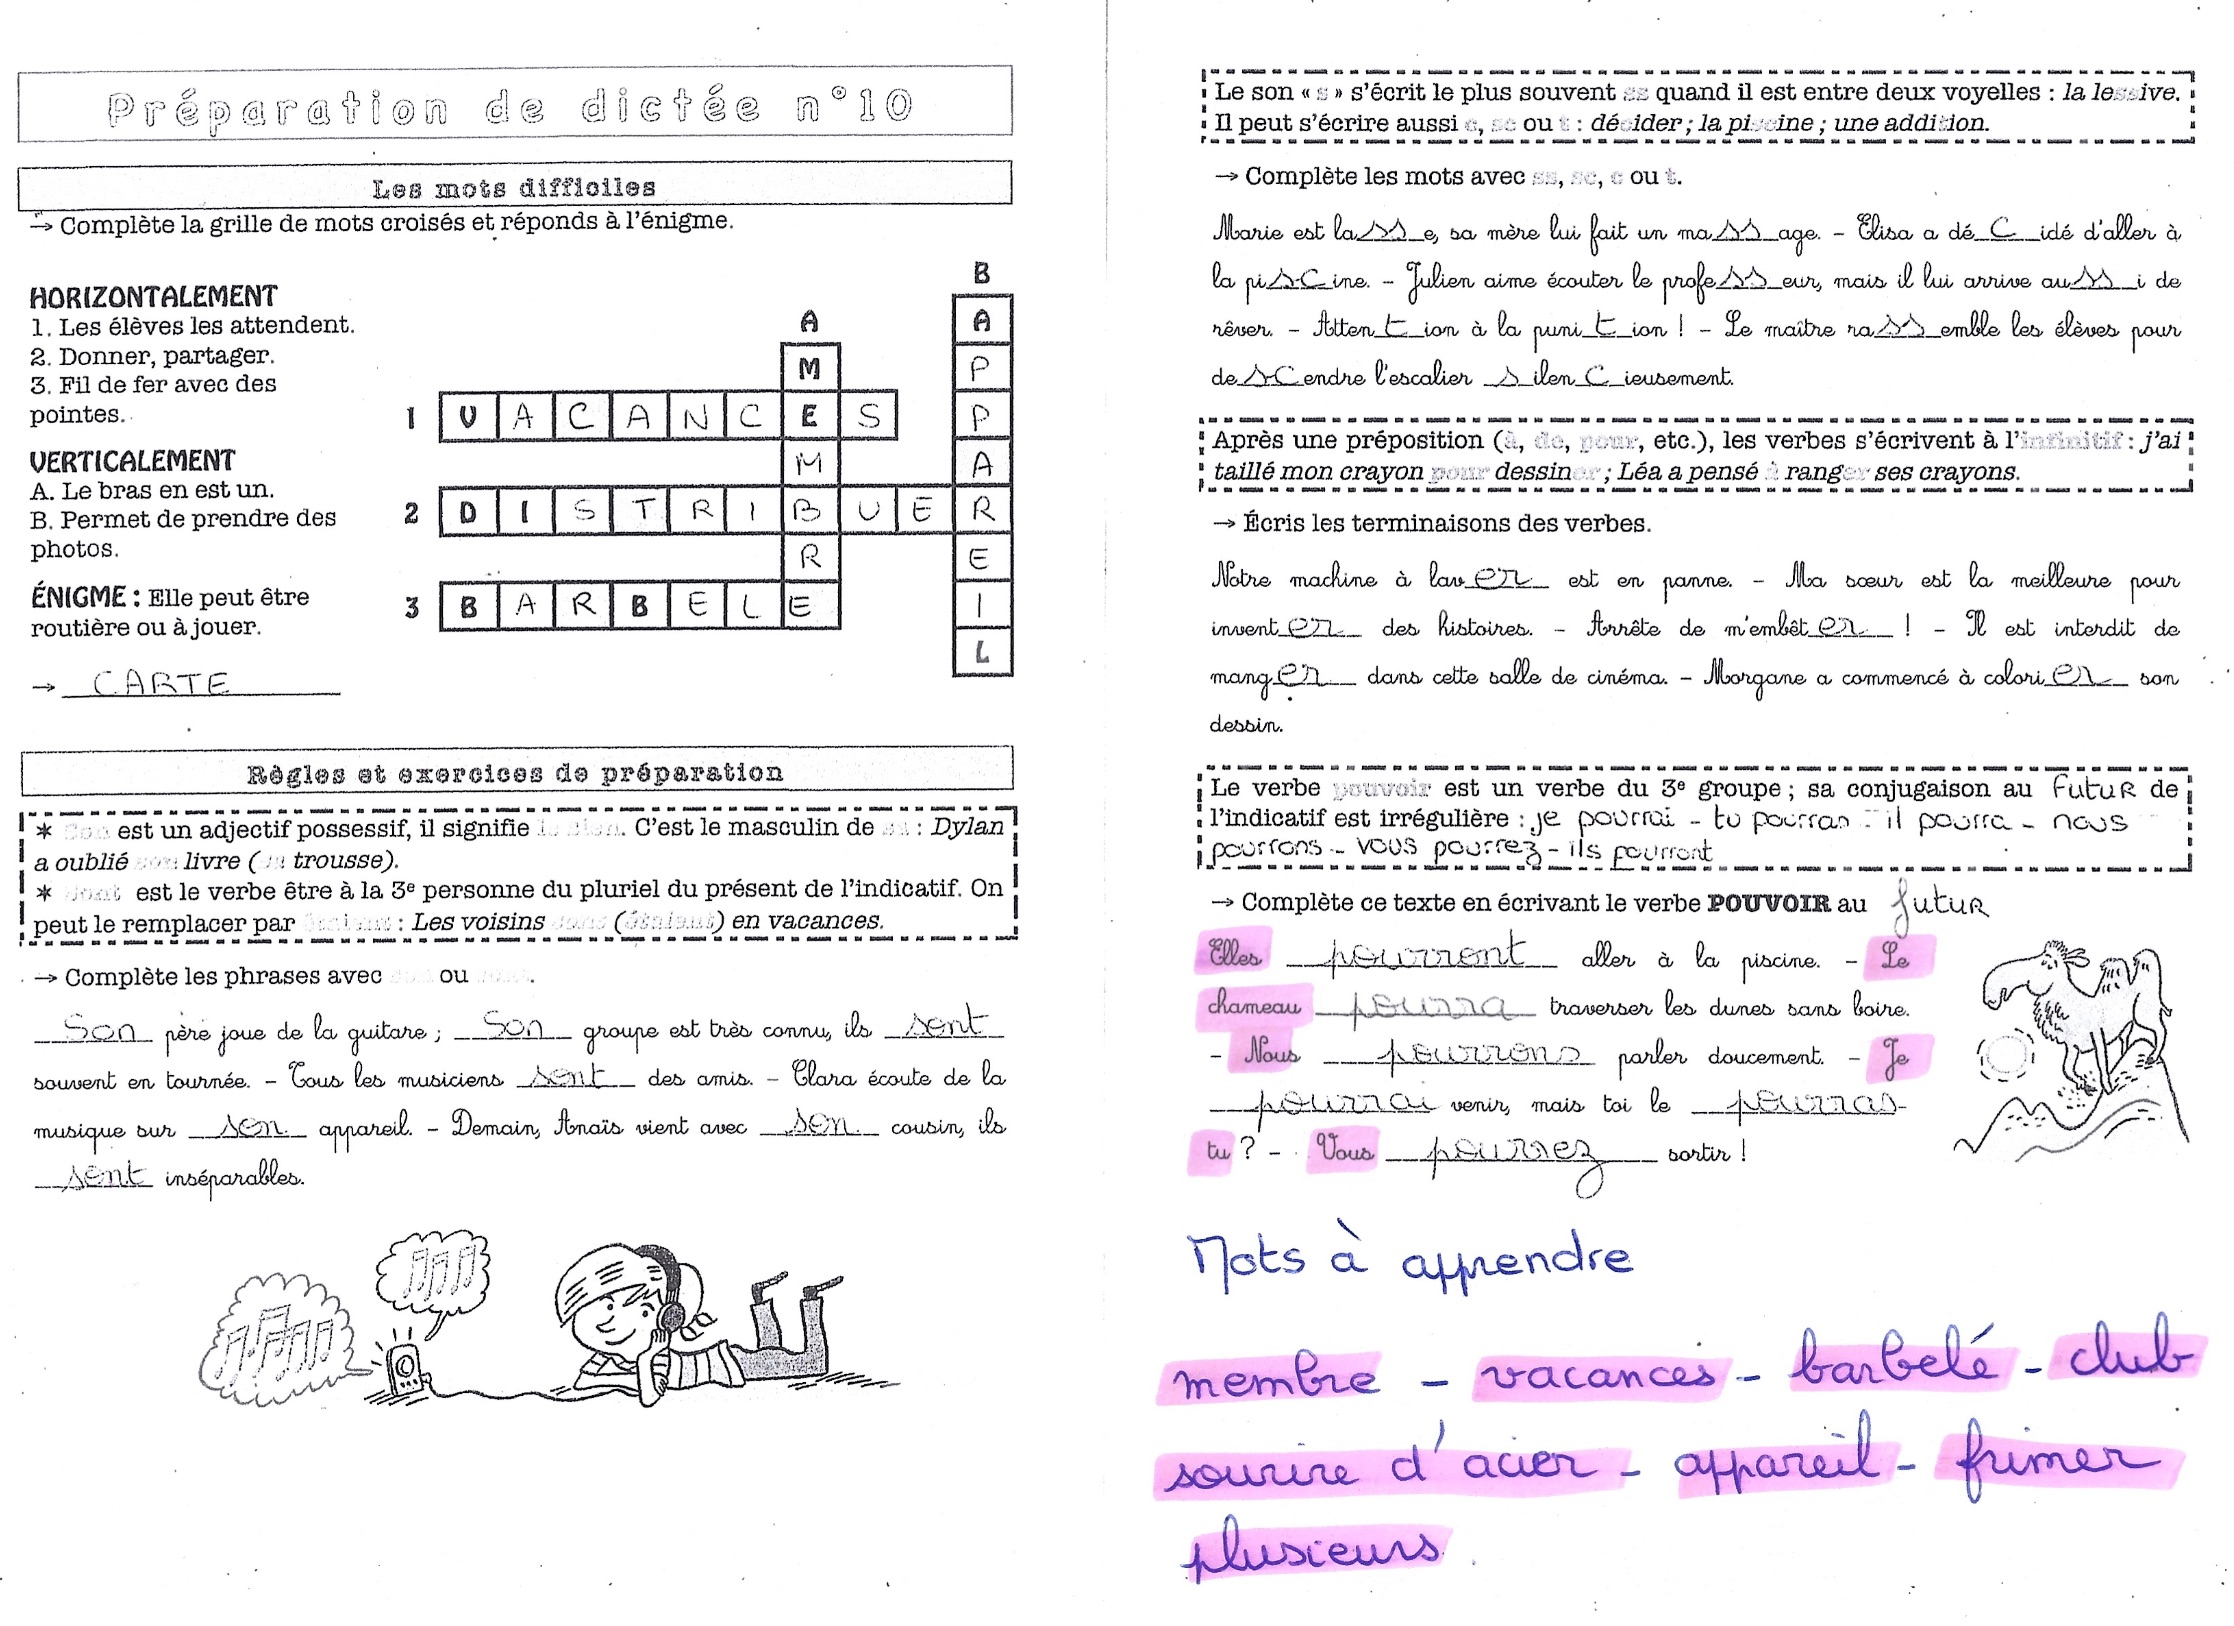 Préparation de dictée n°10
Les mots difficiles
→ Complète la grille de mots croisés et réponds à l'énigme.
HORIZONTALEMENT
1. Les élèves les attendent.
2. Donner, partager.
3. Fil de fer avec des
pointes.
VERTICALEMENT
A. Le bras en est un.
B. Permet de prendre des
photos.
ÉNIGME : Elle peut être
routière ou à jouer.
→ CARTE
B
A A
M P
1 V A C A N C E S P
M A
2 D I S T R I B U E R
R E
3 B A R B E L E I
L
Règles et exercices de préparation
* Son est un adjectif possessif, il signifie le sien. C'est le masculin de sa : Dylan
a oublié son livre (sa trousse).
* Sont est le verbe être à la 3e personne du pluriel du présent de l'indicatif. On
peut le remplacer par étaient : Les voisins sont (étaient) en vacances.
→ Complète les phrases avec son ou sont.
Son père joue de la guitare ; Son groupe est très connu, ils sont
souvent en tournée. – Tous les musiciens sont des amis. – Clara écoute de la
musique sur son appareil. – Demain, Anaïs vient avec son cousin, ils
sont inséparables.
Le son « s » s'écrit le plus souvent ss quand il est entre deux voyelles : la lessive.
Il peut s'écrire aussi c, sc ou t : décider ; la piscine ; une addition.
→ Complète les mots avec ss, sc, c ou t.
Marie est lasse, sa mère lui fait un massage. – Élisa a décidé d'aller à
la piscine. – Julien aime écouter le professeur, mais il lui arrive aussi de
rêver. – Attention à la punition ! – Le maître rassemble les élèves pour
descendre l'escalier silencieusement.
Après une préposition (à, de, pour, etc.), les verbes s'écrivent à l'infinitif : j'ai
taillé mon crayon pour dessiner ; Léa a pensé à ranger ses crayons.
→ Écris les terminaisons des verbes.
Notre machine à laver est en panne. – Ma sœur est la meilleure pour
inventer des histoires. – Arrête de m'embêter ! – Il est interdit de
manger dans cette salle de cinéma. – Morgane a commencé à colorier son
dessin.
Le verbe pouvoir est un verbe du 3e groupe ; sa conjugaison au futur de
l'indicatif est irrégulière : je pourrai - tu pourras - il pourra - nous
pourrons - vous pourrez - ils pourront
→ Complète ce texte en écrivant le verbe POUVOIR au futur
Elles pourront aller à la piscine. – Le
chameau pourra traverser les dunes sans boire.
– Nous pourrons parler doucement. – Je
pourrai venir, mais toi le pourras-
tu ? – Vous pourrez sortir !
Mots à apprendre
membre - vacances - barbelé - club
sourire d'acier - appareil - frimer
plusieurs